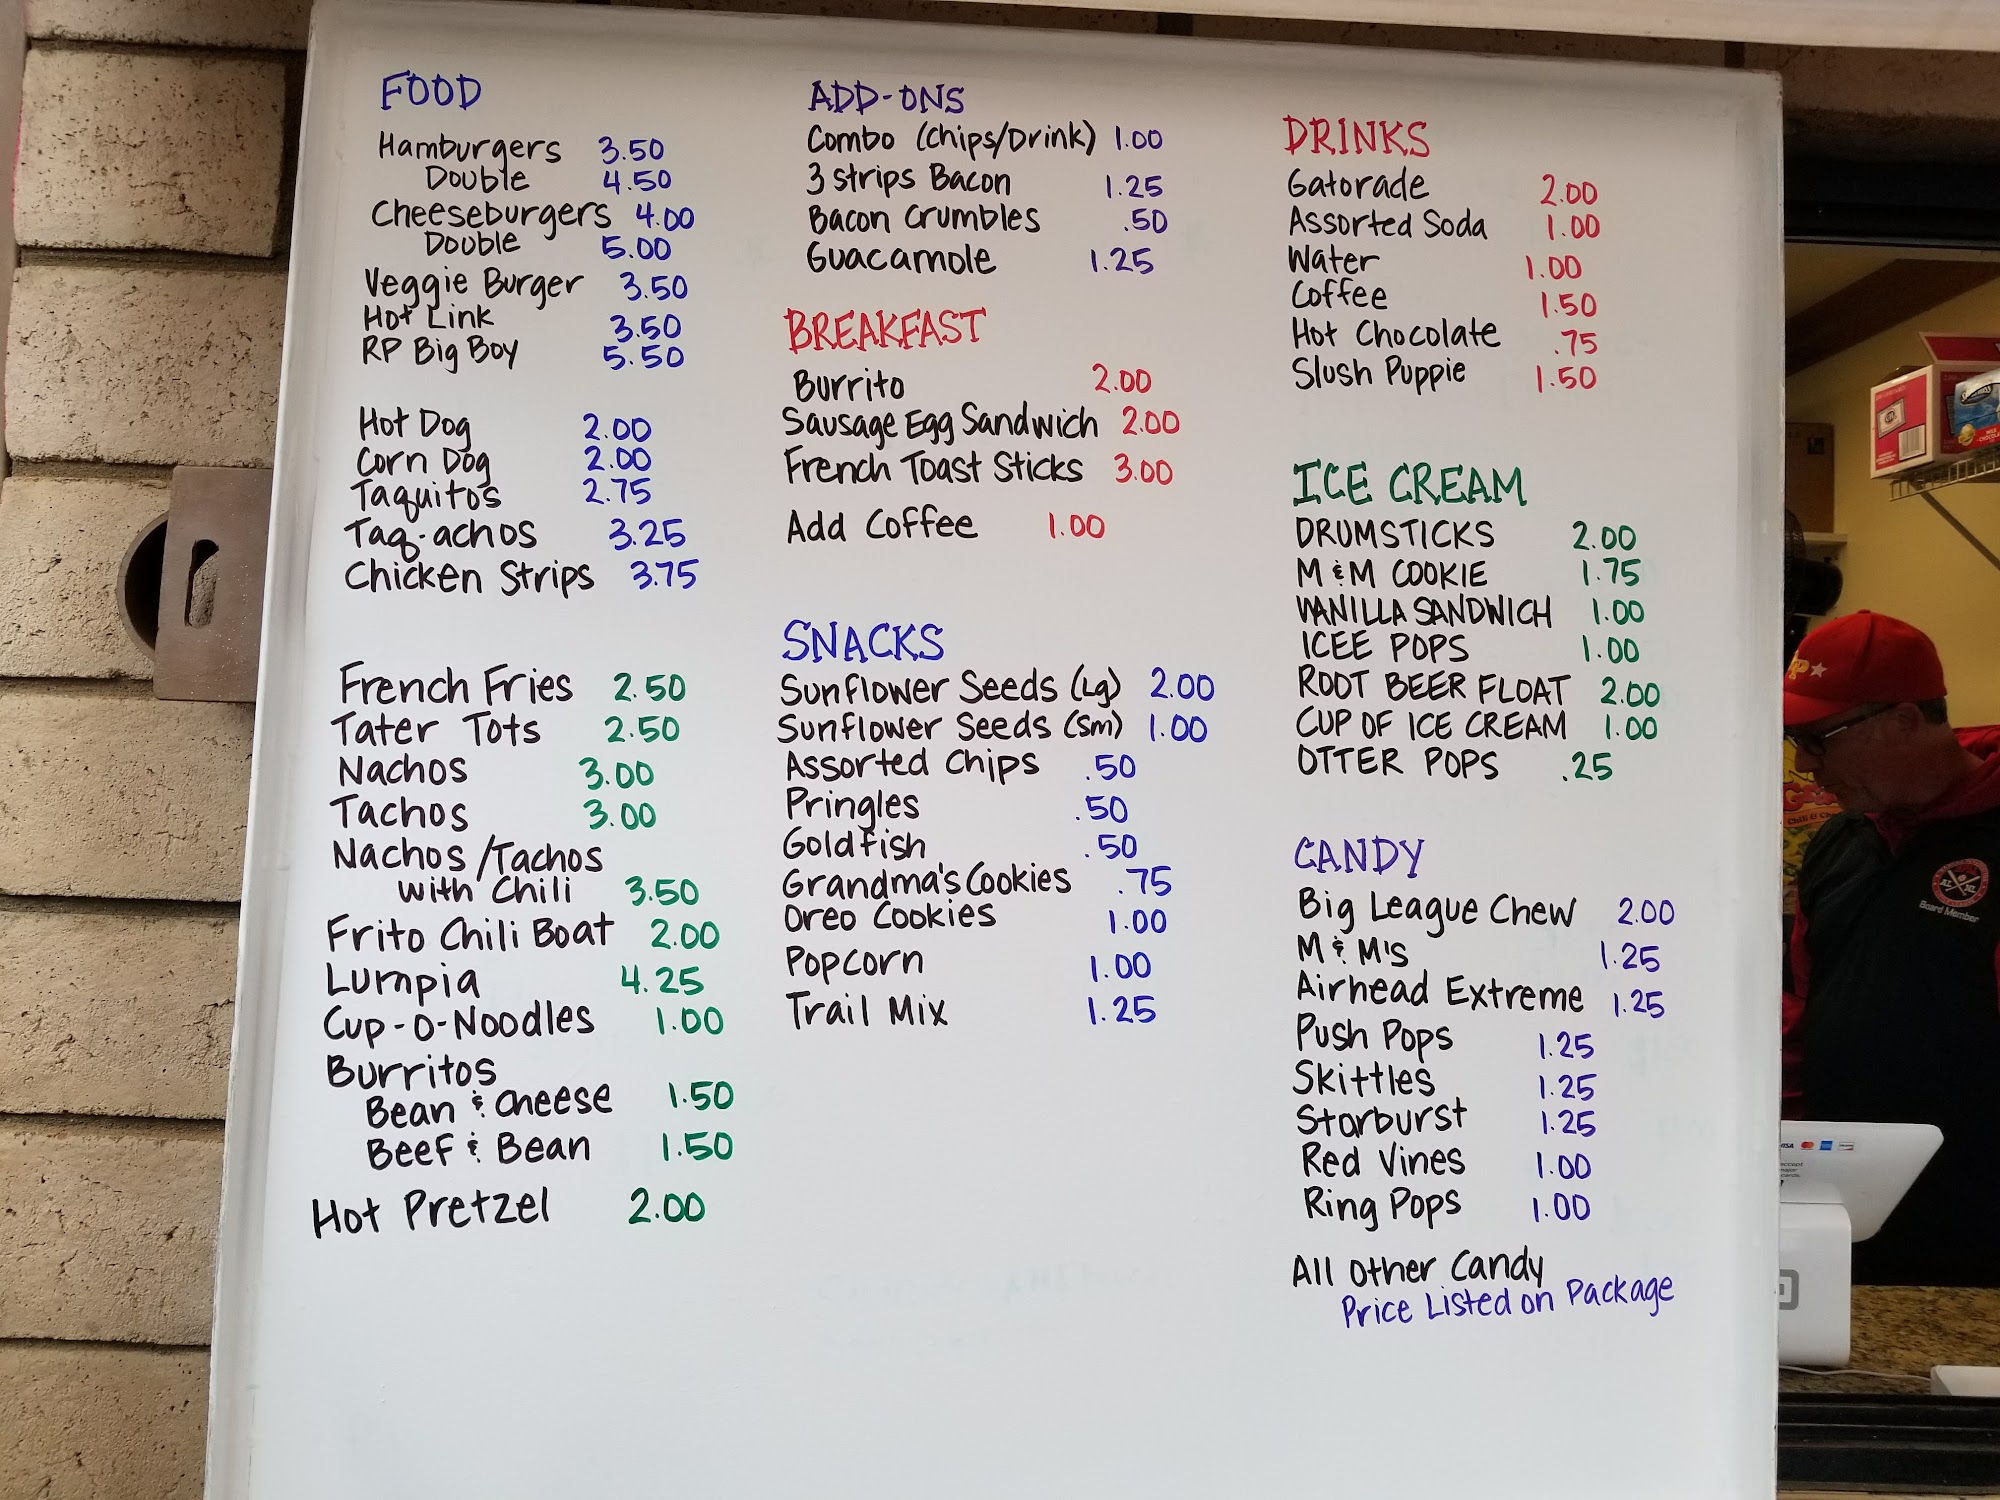 FOOD
Hamburgers 3.50
Double 4.50
Cheeseburgers 4.00
Double 5.00
Veggie Burger 3.50
Hot Link 3.50
RP Big Boy 5.50
Hot Dog 2.00
Corn Dog 2.00
Taquitos 2.75
Taq-achos 3.25
Chicken Strips 3.75
French Fries 2.50
Tater Tots 2.50
Nachos 3.00
Tachos 3.00
Nachos/Tachos
with Chili 3.50
Frito Chili Boat 2.00
Lumpia 4.25
Cup-O-Noodles 1.00
Burritos
Bean & Cheese 1.50
Beef & Bean 1.50
Hot Pretzel 2.00
ADD-ONS
Combo (Chips/Drink) 1.00
3 strips Bacon 1.25
Bacon Crumbles .50
Guacamole 1.25
BREAKFAST
Burrito 2.00
Sausage Egg Sandwich 2.00
French Toast Sticks 3.00
Add Coffee 1.00
SNACKS
Sunflower Seeds (Lg) 2.00
Sunflower Seeds (Sm) 1.00
Assorted Chips .50
Pringles .50
Goldfish .50
Grandma's Cookies .75
Oreo Cookies 1.00
Popcorn 1.00
Trail Mix 1.25
DRINKS
Gatorade 2.00
Assorted Soda 1.00
Water 1.00
Coffee 1.50
Hot Chocolate .75
Slush Puppie 1.50
ICE CREAM
DRUMSTICKS 2.00
M & M COOKIE 1.75
VANILLA SANDWICH 1.00
ICEE POPS 1.00
ROOT BEER FLOAT 2.00
CUP OF ICE CREAM 1.00
OTTER POPS .25
CANDY
Big League Chew 2.00
M & M's 1.25
Airhead Extreme 1.25
Push Pops 1.25
Skittles 1.25
Starburst 1.25
Red Vines 1.00
Ring Pops 1.00
All Other Candy
Price Listed on Package
Board Member